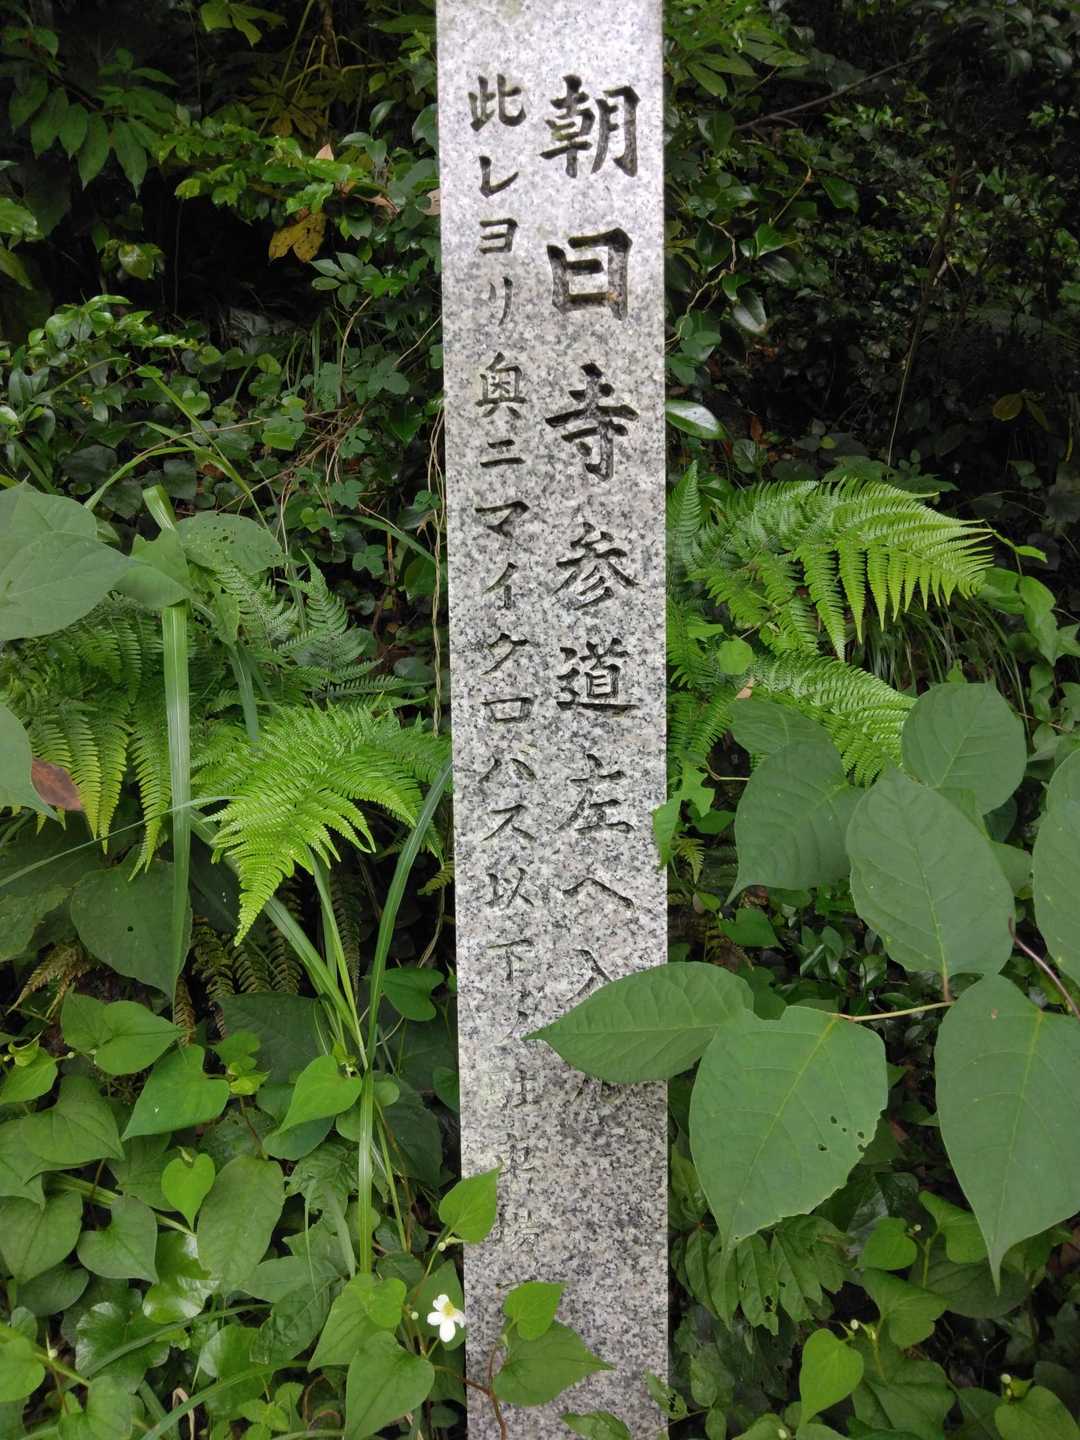 朝日寺参道左へ入
此レヨリ奥ニマイクロバス以下